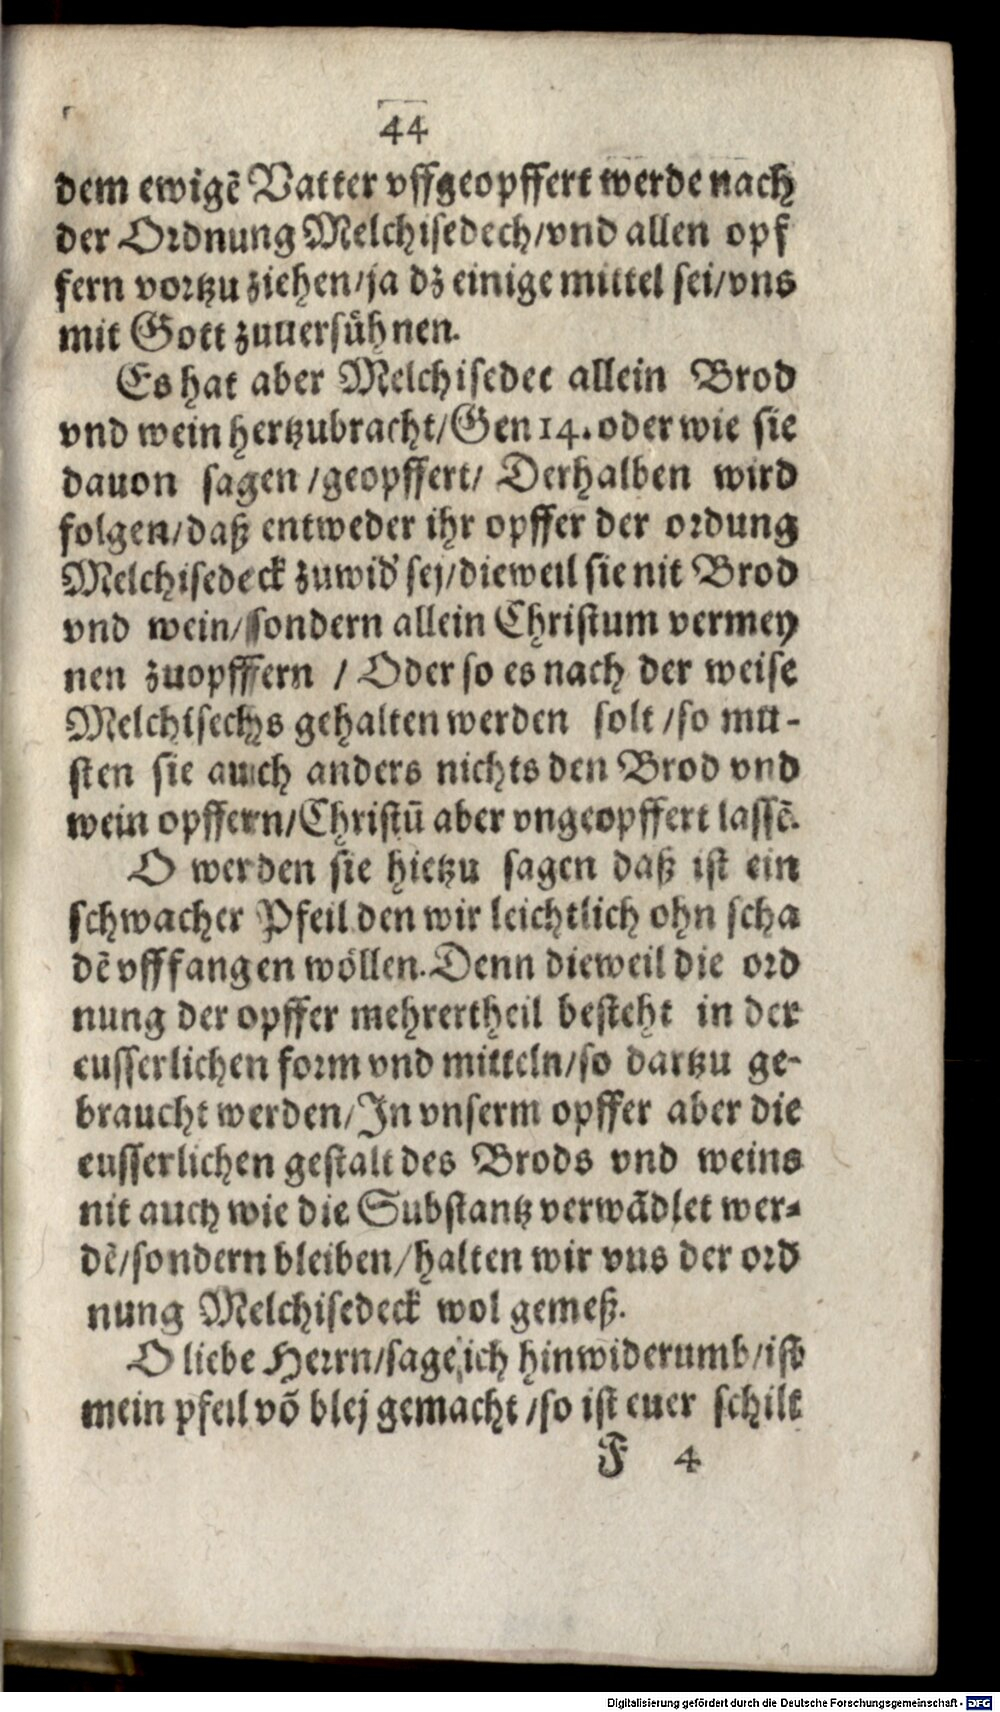 44
dem ewigē Vatter vffgeopffert werde nach
der Ordnung Melchisedech/vnd allen opf
fern vortzu ziehen/ja dz einige mittel sei/vns
mit Gott zuuersühnen.
Es hat aber Melchisedec allein Brod
vnd wein hertzubracht/Gen 14. oder wie sie
dauon sagen/geopffert/ Derhalben wird
folgen/daß entweder ihr opffer der ordung
Melchisedeck zuwid' sej/dieweil sie nit Brod
vnd wein/sondern allein Christum vermey
nen zuopfffern / Oder so es nach der weise
Melchisechs gehalten werden solt/so mu-
sten sie auch anders nichts den Brod vnd
wein opffern/Christū aber vngeopffert lassē.
O werden sie hietzu sagen daß ist ein
schwacher Pfeil den wir leichtlich ohn scha
dē vfffangen wöllen. Denn dieweil die ord
nung der opffer mehrertheil besteht in der
eusserlichen form vnd mitteln/so dartzu ge-
braucht werden/In vnserm opffer aber die
eusserlichen gestalt des Brods vnd weins
nit auch wie die Substantz verwādlet wer-
dē/sondern bleiben/halten wir vns der ord
nung Melchisedeck wol gemeß.
O liebe Herrn/sage ich hinwiderumb/ist
mein pfeil vō blej gemacht/so ist euer schilt
F 4
Digitalisierung gefördert durch die Deutsche Forschungsgemeinschaft - DFG